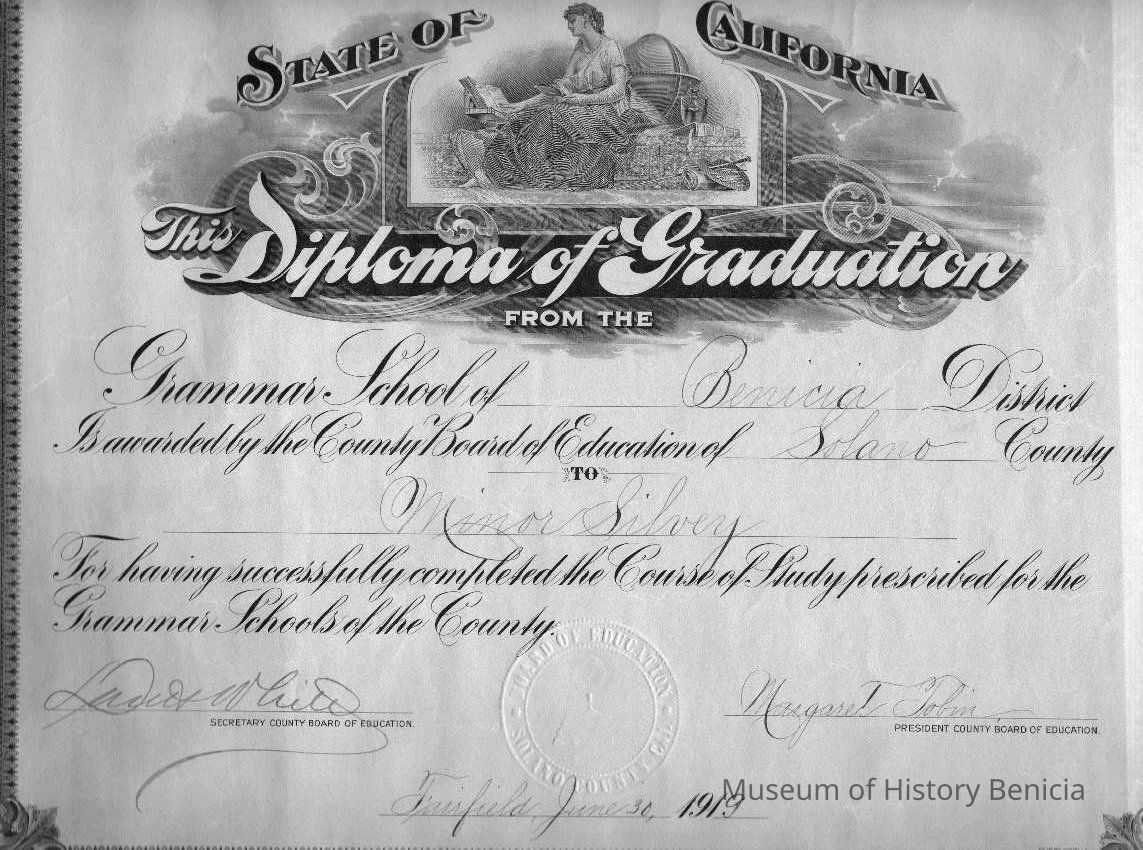 STATE OF CALIFORNIA
This Diploma of Graduation
FROM THE
Grammar School of Benicia District
Is awarded by the County Board of Education of Solano County
TO
Minor Silvey
For having successfully completed the Course of Study prescribed for the
Grammar Schools of the County.
BOARD OF EDUCATION
SOLANO COUNTY
White
SECRETARY COUNTY BOARD OF EDUCATION.
Margaret Tobin
PRESIDENT COUNTY BOARD OF EDUCATION.
Fairfield, June 30, 1919
Museum of History Benicia